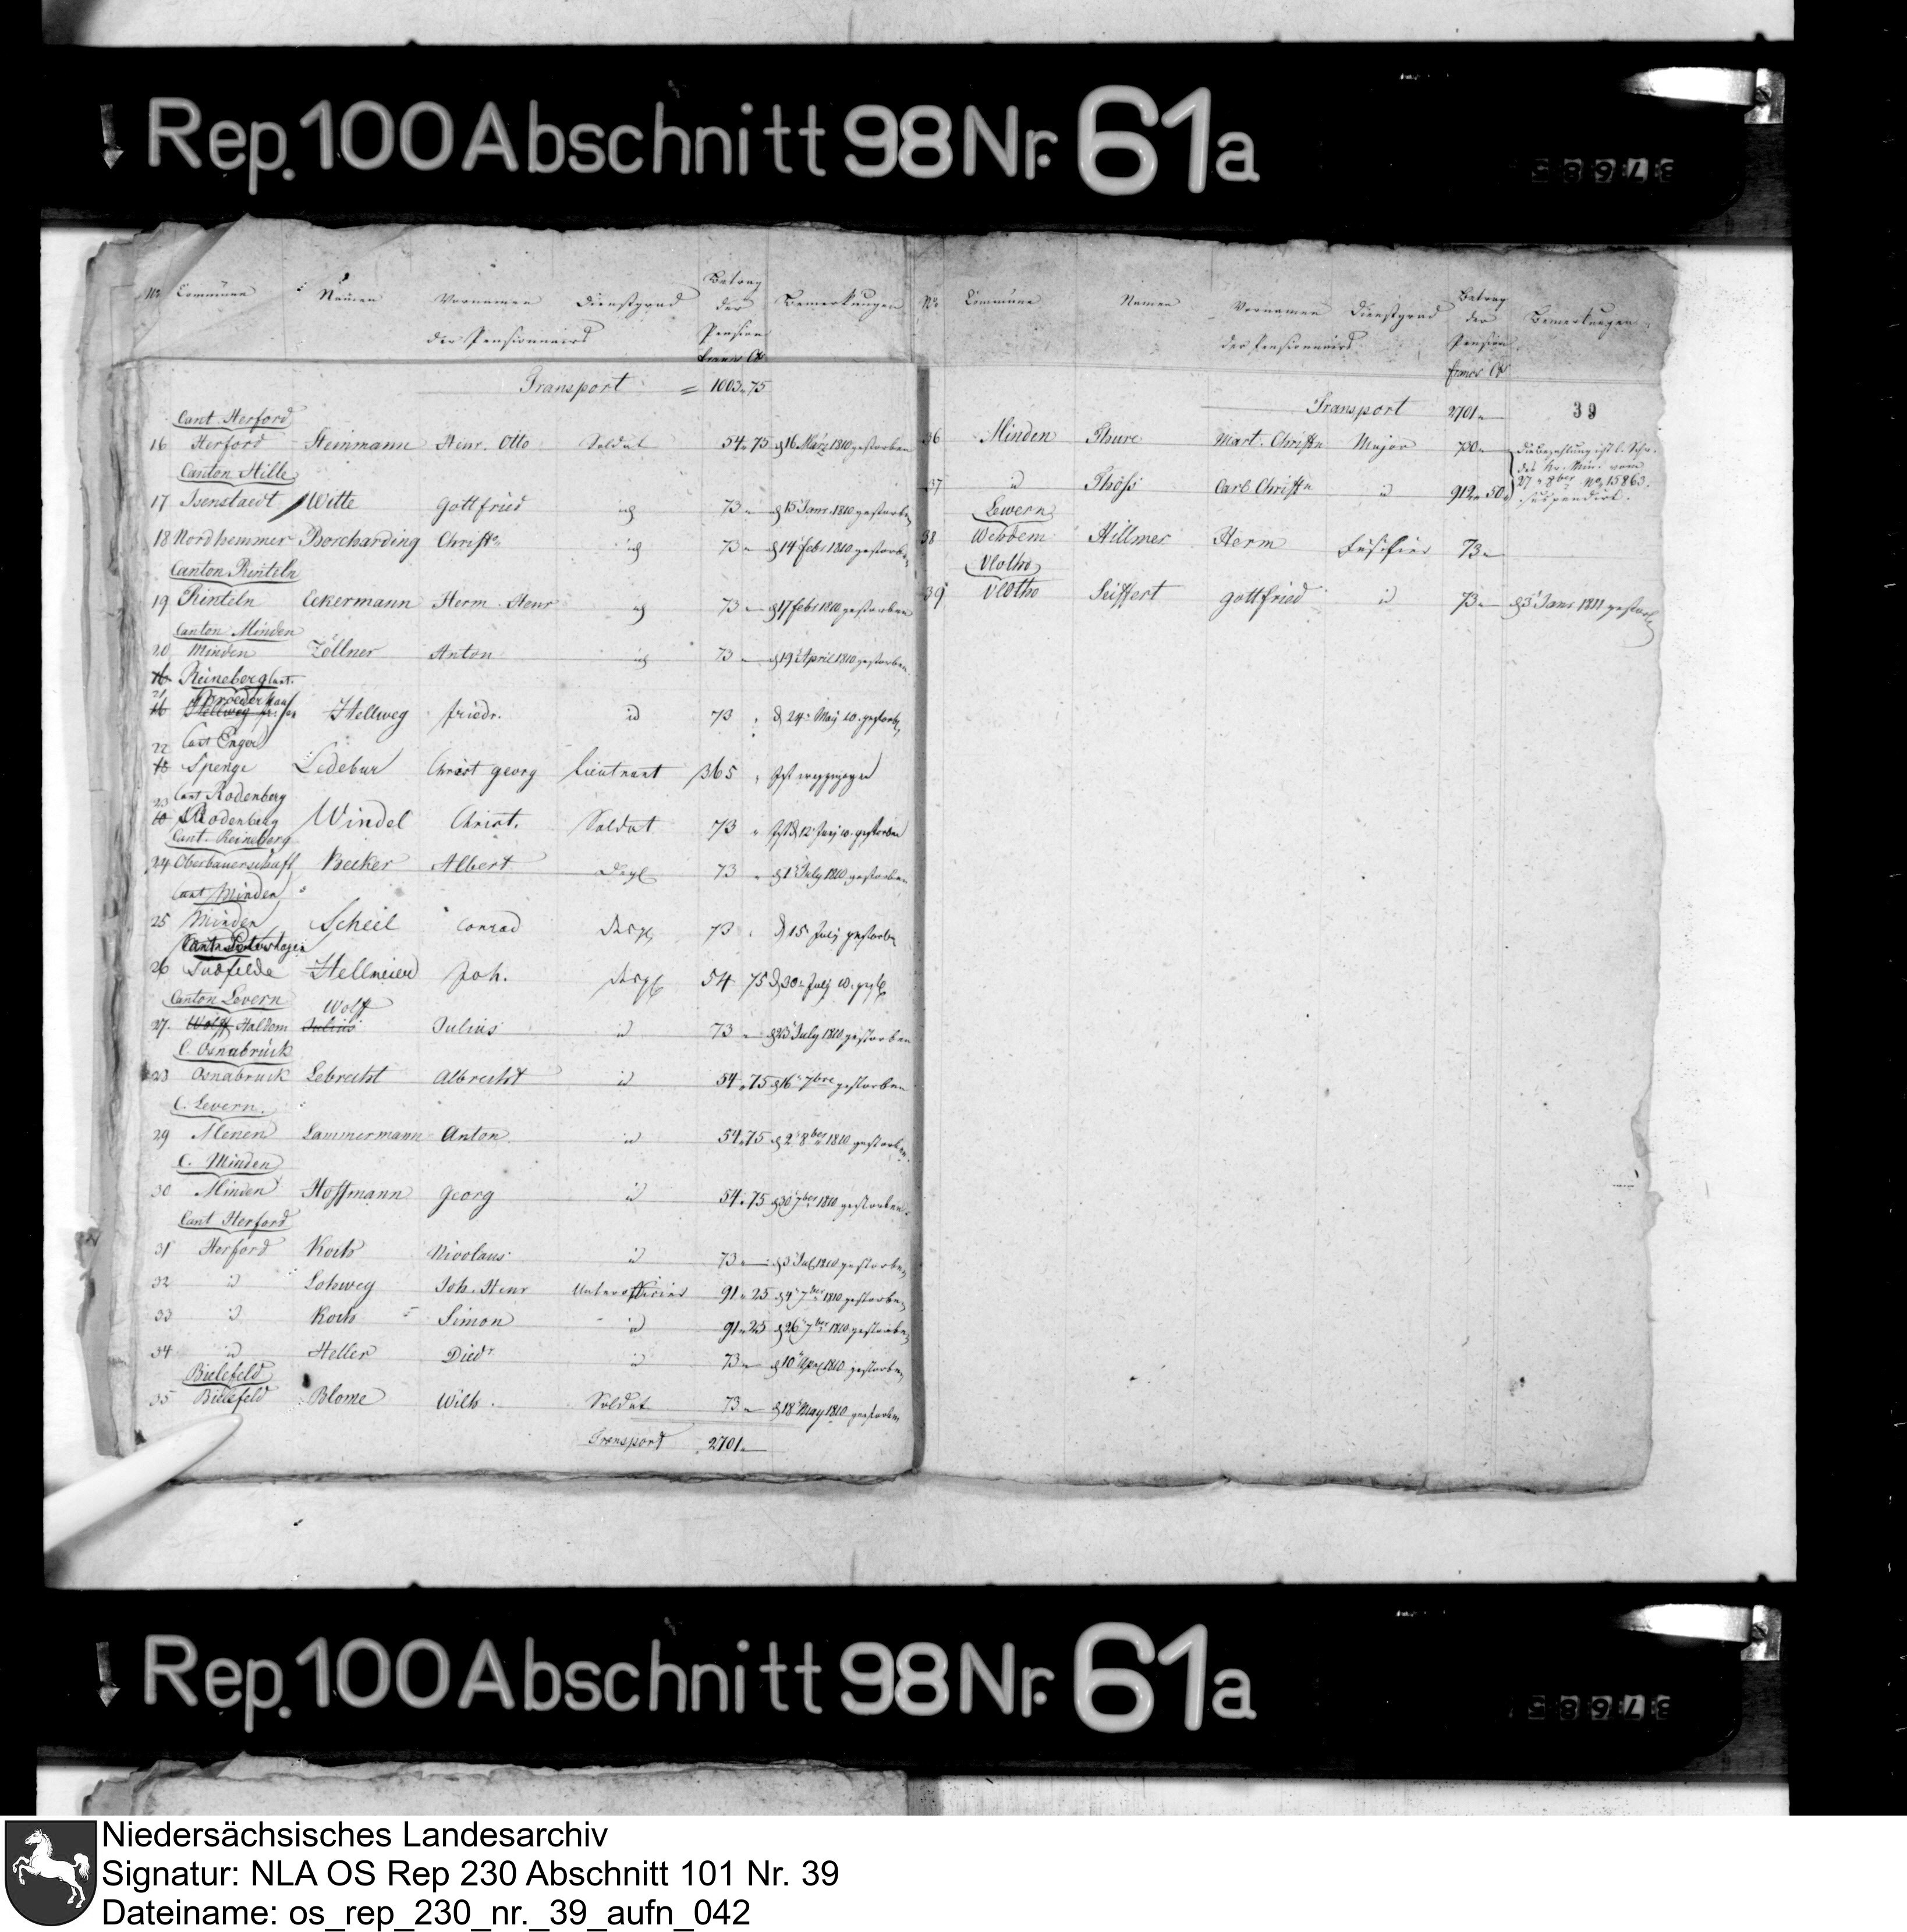 Rep. 100 Abschnitt 98 Nr. 61a
37685
No Commune Namen Vornamen Dienstgrad Betrag der Pension Bemerkungen
der Pensionnairs
francs Cts
Transport = 1003 " 75
Cant Herford
16 Herford Steinmann Henr. Otto Soldat 54 " 75 d 16 März 1810 gestorben
Canton Hille
17 Isenstaedt Witte Gottfried id 73 " d 15 Janr 1810 gestorben
18 Nordhemmer Borcharding Christn id 73 " d 14 febr 1810 gestorben
Canton Rinteln
19 Rinteln Eckermann Herm. Henr id 73 " d 17 febr 1810 gestorben
Canton Minden
20 Minden Zöllner Anton id 73 " d 19 April 1810 gestorben
Reineberg Cant.
21 Hellweg friedr. id 73 " d 24 May 10. gestorben
Cant Enger
22 Spenge Ledebur Christ georg Lieutnant 365 " ist weggezogen
Cant Rodenberg
23 Rodenberg Windel Christ. Soldat 73 " ist d 12 Juny 10. gestorben
Cant. Reineberg
24 Oberbauerschaft Becker Albert Desgl 73 " d 1 July 1810 gestorben
Cant Minden
25 Minden Scheil Conrad desgl 73 " d 15 July gestorben
Canton Petershagen
26 Südfelde Hellmeier Joh. desgl 54 75 d 30 July 10. gest
Canton Levern
Wolff
27. Wolff Haldem Julius Julius id 73 " d 23 July 1810 gestorben
C. Osnabrück
28 Osnabrück Lebrecht Albrecht id 54 " 75 d 16 7bre gestorben
C. Levern.
29 Lammermann Anton id 54 " 75 d 2 8ber 1810 gestorben
C. Minden
30 Minden Hoffmann Georg id 54 " 75 d 30 7ber 1810 gestorben
Cant Herford
31 Herford Koch Nicolaus id 73 " d 3 Jul 1810 gestorben
32 id Lohweg Joh. Henr Unterofficier 91 " 25 d 4 7ber 1810 gestorben
33 id Koch Simon id 91 " 25 d 26 7ber 1810 gestorben
34 id Heller Diedr id 73 " d 10 April 1810 gestorben
Bielefeld
35 Bielefeld Blome Wilh. Soldat 73 " d 18 May 1810 gestorben
Transport 2701 "
No Commune Namen Vornamen Dienstgrad Betrag der Pension Bemerkungen
der Pensionnairs
francs Cts
Transport 2701 "
39
36 Minden Mart. Christn Major 730 " die Bezahlung ist l. Schr.
des Kr. Min. vom
37 id Carl Christn id 912 " 50 27 8ber no 15863.
suspendirt.
Lewern
38 Wehdem Hillmer Herm Füsilier 73 "
Vlotho
39 Vlotho Seiffert Gottfried id 73 " d 3 Janr 1811 gestorben
Rep. 100 Abschnitt 98 Nr. 61a
37685
Niedersächsisches Landesarchiv
Signatur: NLA OS Rep 230 Abschnitt 101 Nr. 39
Dateiname: os_rep_230_nr._39_aufn_042